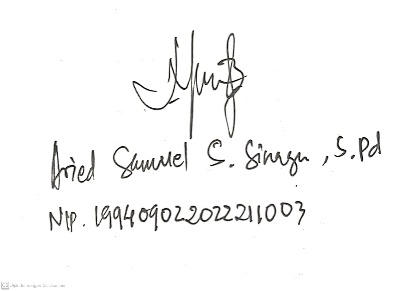 Aried Samuel S. Sinaga, S.Pd
NIP. 199409022022211003